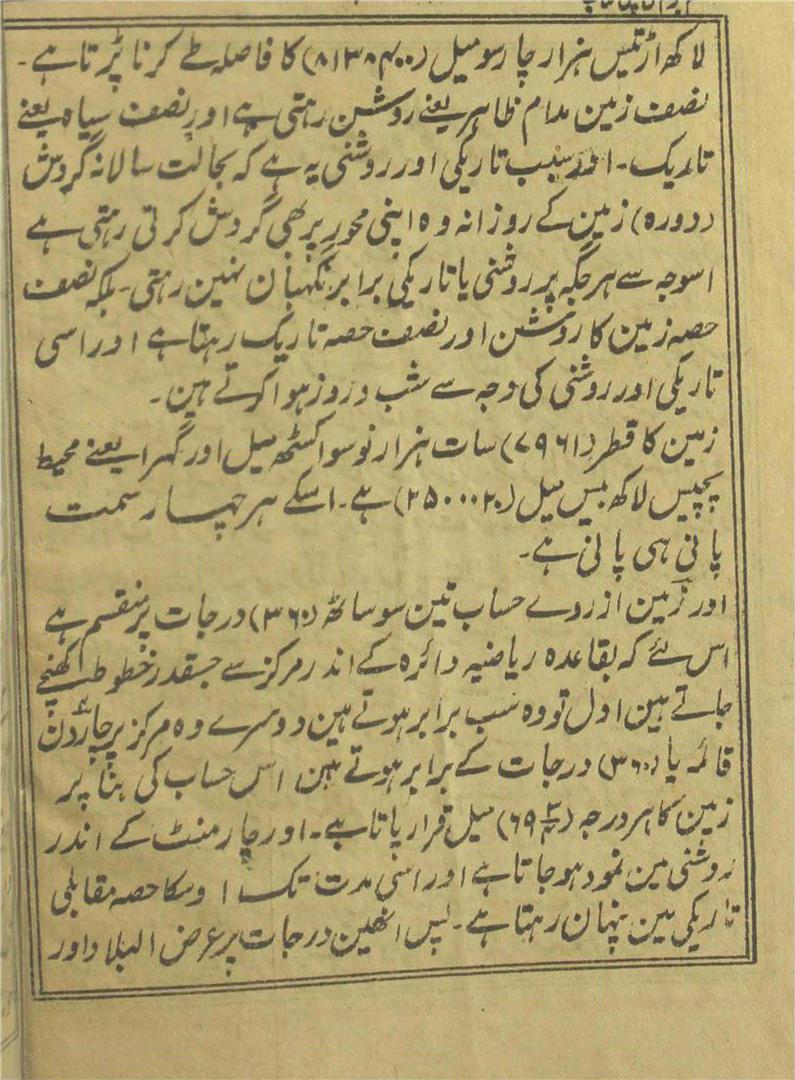 لاکھ اڑتیس ہزار چار سو میل (۸۱۳۸۴۰۰) کا فاصلہ طے کرنا پڑتا ہے۔
نصف زمین مدام ظاہر یعنے روشن رہتی ہے اور نصف سیاہ یعنے
تاریک۔ اور سبب تاریکی اور روشنی یہ ہے کہ بحالت سالانہ گردش
(دورہ) زمین کے روزانہ وہ اپنی محور پر بھی گردش کرتی رہتی ہے
اسوجہ سے ہر جگہ پر روشنی یا تاریکی برابر نگہبان نہین رہتی۔ بلکہ نصف
حصہ زمین کا روشن اور نصف حصہ تاریک رہتا ہے اور اسی
تاریکی اور روشنی کی وجہ سے شب و روز ہوا کرتے ہین۔
زمین کا قطر (۷۹۶۱) سات ہزار نو سو اکسٹھ میل اور گہرا یعنے محیط
پچیس لاکھ بیس میل (۲۵۰۰۰۲۰) ہے۔ اسکے ہر چہار سمت
پانی ہی پانی ہے۔
اور زمین از روے حساب تین سو ساٹھ (۳۶۰) درجات پر منقسم ہے
اس لئے کہ بقاعدہ ریاضیہ دائرہ کے اندر مرکز سے جسقدر خطوط کھنچے
جاتے ہین اول تو وہ سب برابر ہوتے ہین دوسرے وہ مرکز پر چارون
قائمہ یا (۳۶۰) درجات کے برابر ہوتے ہین اس حساب کی بنا پر
زمین کا ہر درجہ (۶۹) میل قرار پاتا ہے۔ اور چار منٹ کے اندر
روشنی مین نمود ہو جاتا ہے اور اسی مدت تک اوسکا حصہ مقابلی
تاریکی مین پنہان رہتا ہے۔ پس انھین درجات پر عرض البلاد اور